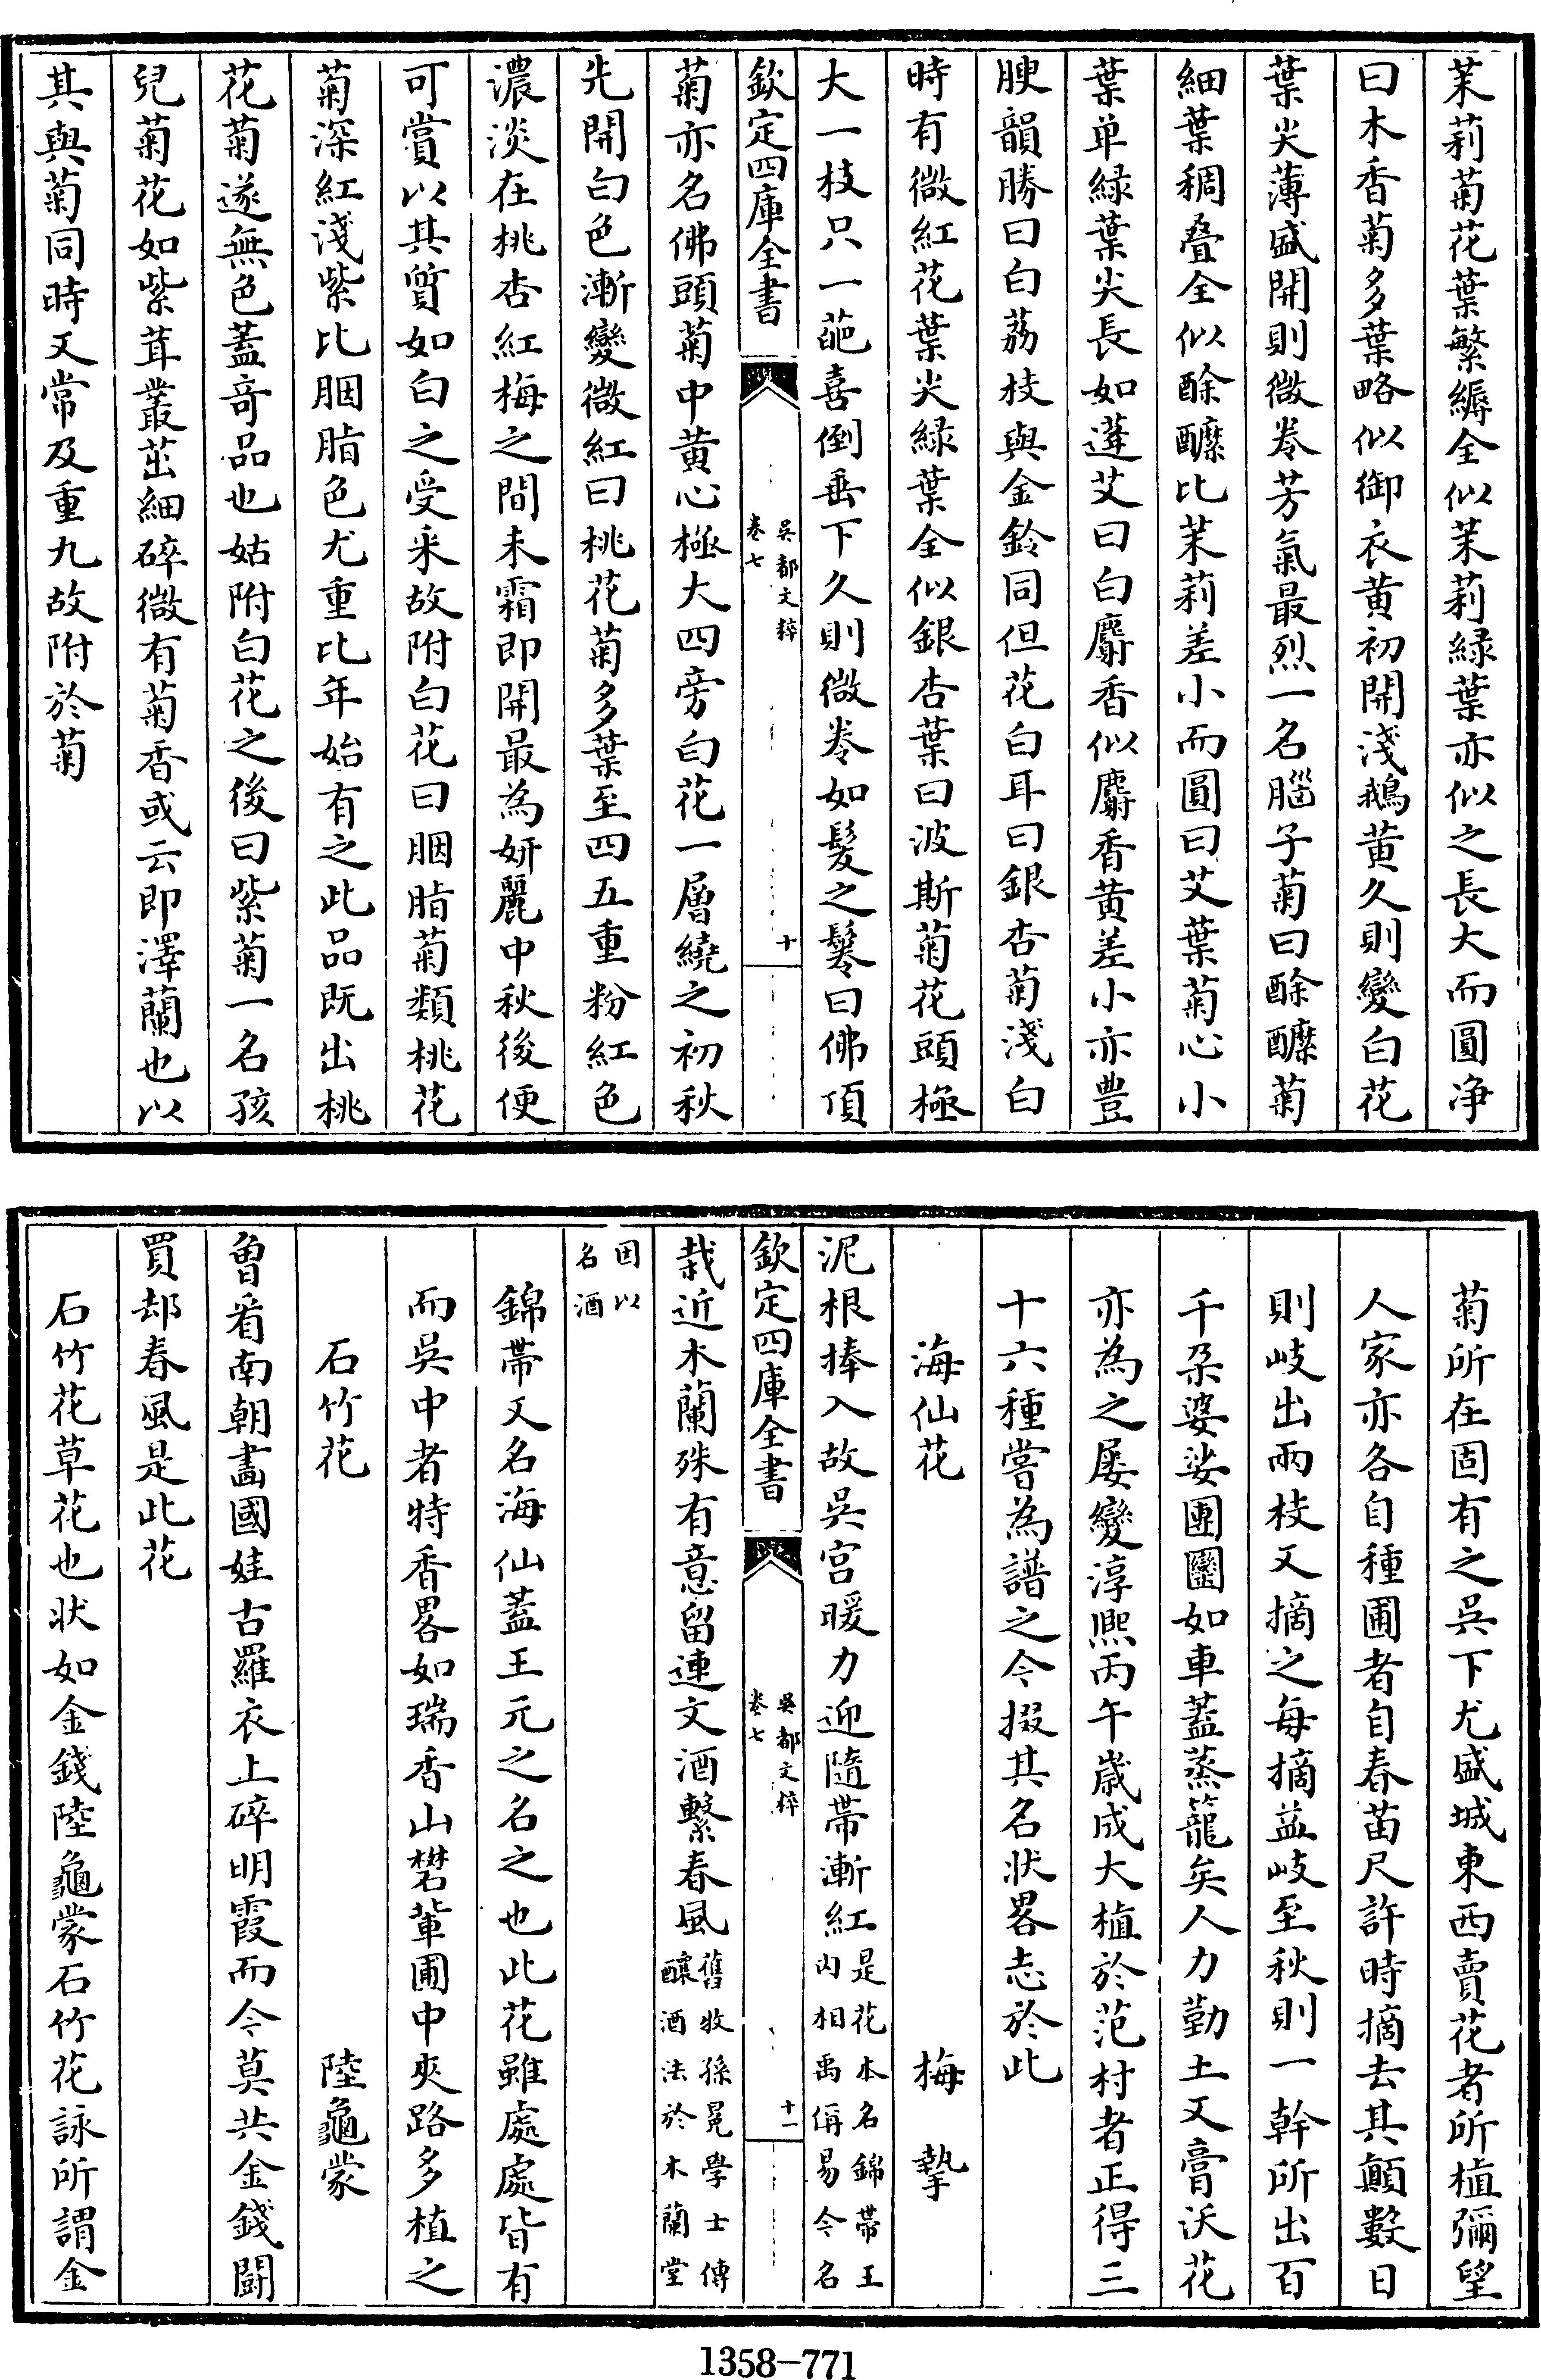 茉莉菊花葉繁縟全似茉莉緑葉亦似之長大而圓净
曰木香菊多葉略似御衣黄初開淺鵝黄久則變白花
葉尖薄盛開則微卷芳氣最烈一名腦子菊曰酴醾菊
細葉稠叠全似酴醾比茉莉差小而圓曰艾葉菊心小
葉单緑葉尖長如蓬艾曰白麝香似麝香黄差小亦豊
腴韻勝曰白荔枝與金鈴同但花白耳曰銀杏菊淺白
時有微紅花葉尖緑葉全似銀杏葉曰波斯菊花頭極
大一枝只一葩喜倒垂下久則微卷如髮之鬈曰佛頂
欽定四庫全書
吳都文粹
卷七
十
菊亦名佛頭菊中黄心極大四旁白花一層繞之初秋
先開白色漸變微紅曰桃花菊多葉至四五重粉紅色
濃淡在桃杏紅梅之間未霜即開最為妍麗中秋後便
可賞以其質如白之受采故附白花曰胭脂菊類桃花
菊深紅淺紫比胭脂色尤重比年始有之此品既出桃
花菊遂無色蓋竒品也姑附白花之後曰紫菊一名孩
兒菊花如紫茸叢茁細碎微有菊香或云即澤蘭也以
其與菊同時又常及重九故附於菊
菊所在固有之吳下尤盛城東西賣花者所植彌望
人家亦各自種圃者自春苗尺許時摘去其顛數日
則岐出兩枝又摘之每摘益岐至秋則一幹所出百
千朶婆娑團圞如車蓋蒸籠矣人力勤土又膏沃花
亦為之屡變淳熙丙午嵗成大植於范村者正得三
十六種嘗為譜之今掇其名状畧志於此
海仙花 梅摯
泥根捧入故吳宫暖力迎隨帯漸紅是花本名錦帯王
内相禹偁易今名
欽定四庫全書
吳都文粹
卷七
十一
栽近木蘭殊有意留連文酒繫春風舊收孫冕學士傳
釀酒法於木蘭堂
因以
名酒
錦帯又名海仙蓋王元之名之也此花雖處處皆有
而吳中者特香畧如瑞香山礬軰圃中夾路多植之
石竹花 陸龜蒙
曾㸔南朝畫國娃古羅衣上碎明霞而今莫共金錢鬬
買却春風是此花
石竹花草花也状如金錢陸龜蒙石竹花詠所謂金
1358-771